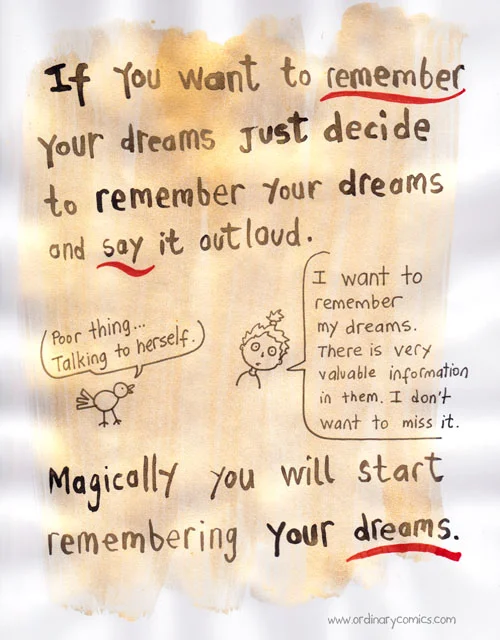 If you want to remember
your dreams just decide
to remember your dreams
and say it outloud.
Poor thing...
Talking to herself.
I want to
remember
my dreams.
There is very
valuable information
in them. I don't
want to miss it.
Magically you will start
remembering your dreams.
www.ordinarycomics.com